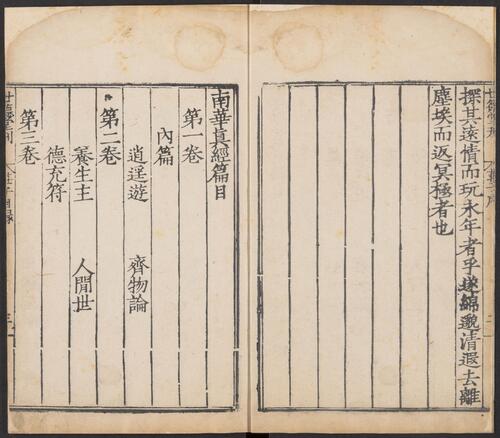 探其遠情而玩永年者乎遂綿邈清遐去離
塵埃而返冥極者也
南華真經篇目
第一卷
內篇
逍遥遊 齊物論
第二卷
養生主 人閒世
德充符
第三卷